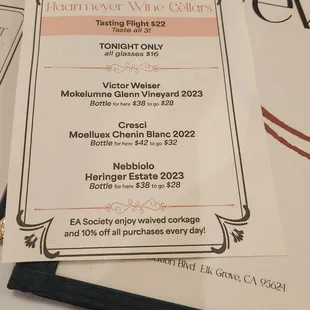 Haarmeyer Wine Cellars
Tasting Flight $22
Taste all 3!
TONIGHT ONLY
all glasses $16
Victor Weiser
Mokelumne Glenn Vineyard 2023
Bottle for here $38 to go $28
Cresci
Moelluex Chenin Blanc 2022
Bottle for here $42 to go $32
Nebbiolo
Heringer Estate 2023
Bottle for here $38 to go $28
EA Society enjoy waived corkage
and 10% off all purchases every day!
Blvd Elk Grove, CA 95624